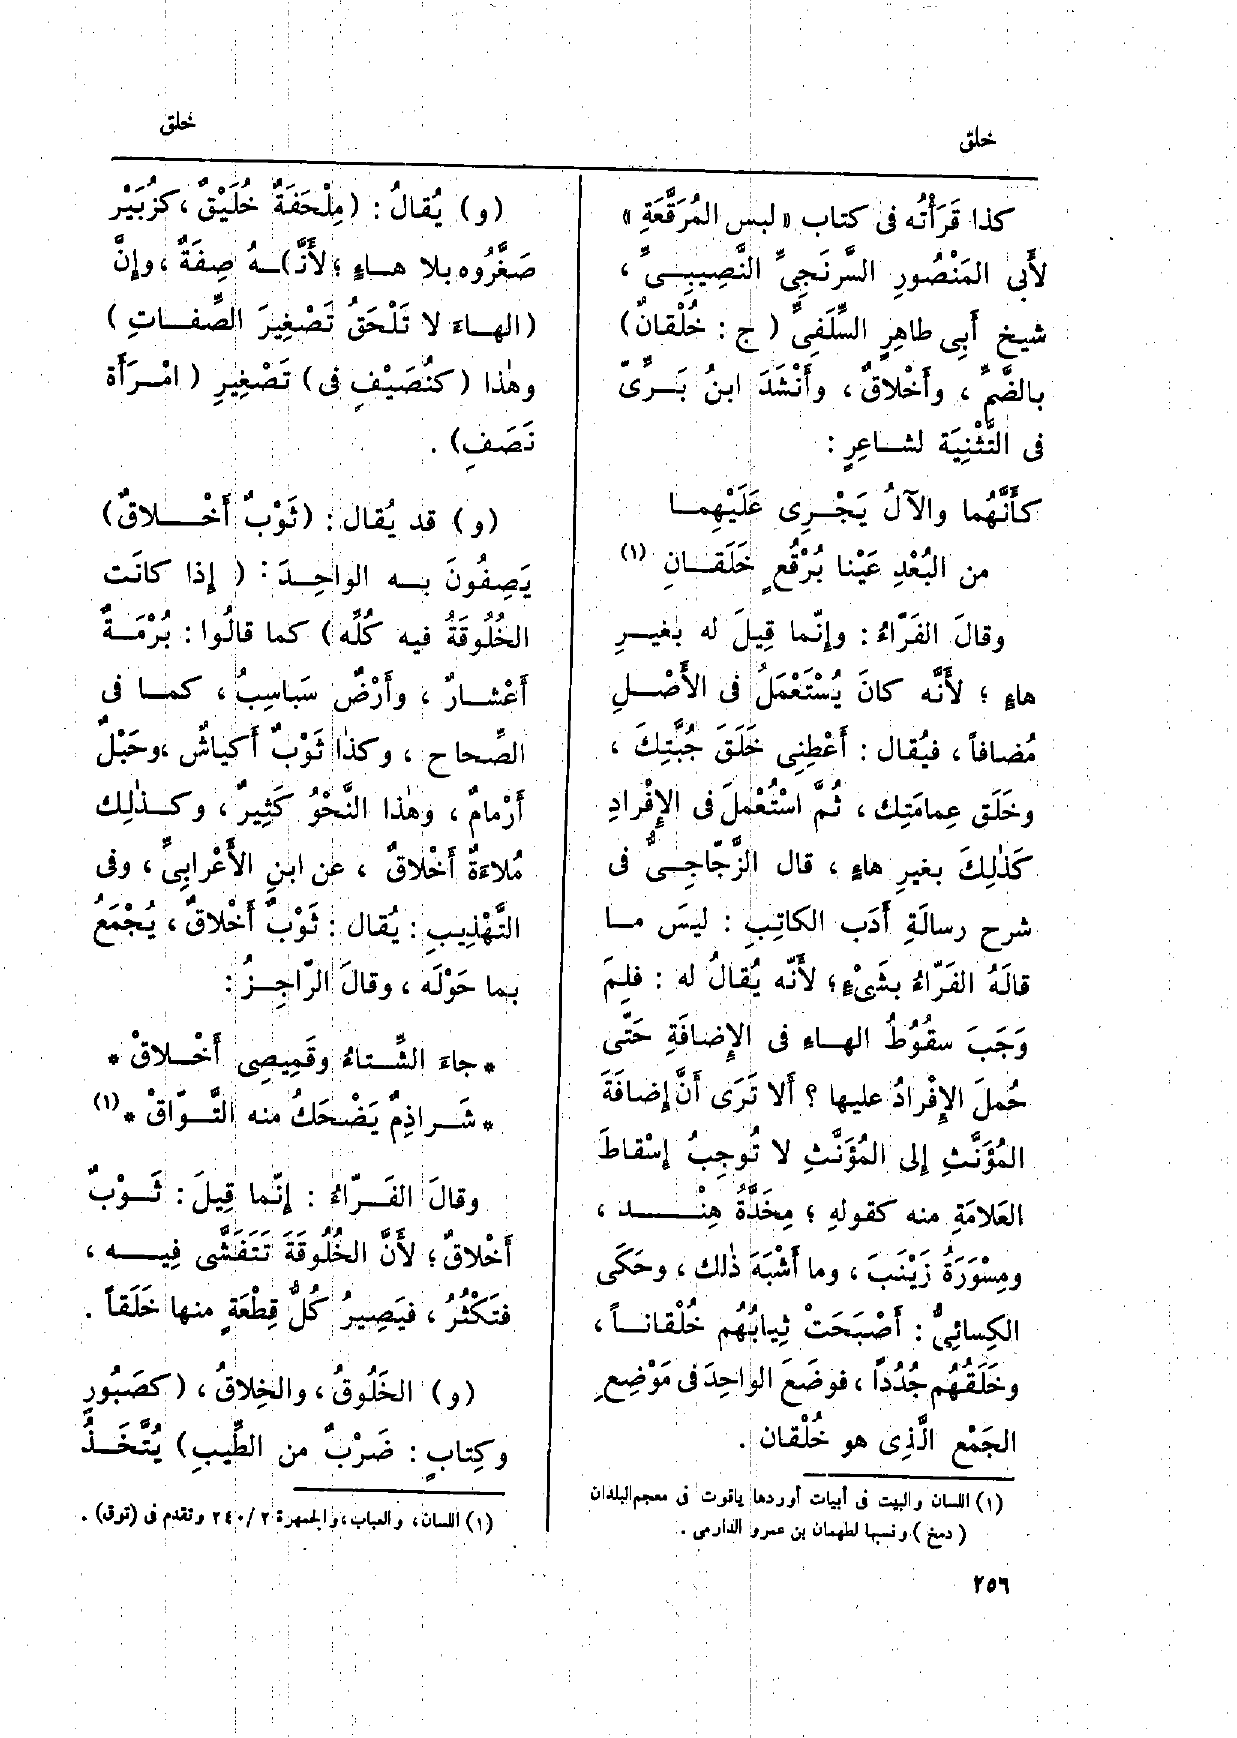 خلق
خلق
كذا قَرَأْتُه فى كتاب «لبس المُرَقَّعَةِ»
لأَبى المَنْصُورِ السَّرنَجِىِّ النَّصِيبِىِّ ،
شيخ أَبِى طاهِرٍ السِّلَفِىِّ ( ج : خُلْقانٌ)
بالضَّمِّ ، وأَخْلاقٌ ، وأَنْشَدَ ابنُ بَرِّىّ
فى التَّثْنِيَة لشاعِرٍ :
كأَنَّهُما والآلُ يَجْرِى عَلَيْهِما
من البُعْدِ عَيْنا بُرْقُعٍ خَلَقانِ (١)
وقالَ الفَرّاءُ : وإِنّما قِيلَ له بغيرِ
هاءٍ ؛ لأَنَّه كانَ يُسْتَعْمَلُ فى الأَصْلِ
مُضافاً ، فيُقال : أَعْطِنِى خَلَقَ جُبَّتِكَ ،
وخَلَق عِمامَتِك ، ثُمَّ اسْتُعْمِلَ فى الإِفْرادِ
كَذٰلِكَ بغيرِ هاءٍ ، قال الزَّجّاجِىُّ فى
شرح رسالَةِ أَدَب الكاتِبِ : ليسَ ما
قالَهُ الفَرّاءُ بشَىْءٍ؛ لأَنّه يُقالُ له : فلِمَ
وَجَبَ سقُوطُ الهاءِ فى الإِضافَةِ حَتَّى
حُمِلَ الإِفْرادُ عليها ؟ أَلا تَرَى أَنَّ إِضافَةَ
المُؤَنَّثِ إِلى المُؤَنَّثِ لا تُوجِبُ إِسْقاطَ
العَلامَةِ منه كقولهِ ؛ مِخَدَّةُ هِنْد ،
ومِسْوَرَةُ زَيْنَبَ ، وما أَشْبَهَ ذٰلك ، وحَكَى
الكِسائِىُّ : أَصْبَحَتْ ثِيابُهُم خُلْقاناً ،
وخَلَقُهُم جُدُداً ، فوضَعَ الواحِدَ فى مَوْضِعِ
الجَمْع الَّذِى هو خُلْقان .
(١) اللسان والبيت فى أبيات أوردها ياقوت فى معجم البلدان
( دمخ ) ونسبها لطهمان بن عمرو الدارمى .
٢٥٦
(و) يُقالُ : (مِلْحَفَةٌ خُلَيْقٌ ، كزُبَيْر
صَغَّرُوه بلا هاءٍ ؛ لأَنَّ)ـهُ صِفَةٌ ، وإِنَّ
(الهاءَ لا تَلْحَقُ تَصْغِيرَ الصِّفاتِ )
وهٰذا (كنُصَيْفٍ فى) تَصْغِيرِ ( امْرَأَة
نَصَفٍ) .
(و) قد يُقال : (ثَوْبٌ أَخْلاقٌ)
يَصِفُونَ به الواحِدَ : ( إِذا كانَت
الخُلُوقَةُ فيه كُلِّه) كما قالُوا : بُرْمَةٌ
أَعْشارٌ ، وأَرْضٌ سَباسِبُ ، كما فى
الصِّحاح ، وكذا ثَوْبٌ أَكياشٌ ،وحَبْلٌ
أَرْمامٌ ، وهٰذا النَّحْوُ كَثِيرٌ ، وكذٰلِك
مُلاءَةٌ أَخْلاقٌ ، عن ابنِ الأَعْرابِىِّ ، وفى
التَّهْذِيبِ : يُقال : ثَوْبٌ أَخْلاقٌ ، يُجْمَعُ
بما حَوْلَه ، وقالَ الرّاجِزُ :
* جاءَ الشِّتاءُ وقَمِيصِى أَخْلاقْ *
* شَراذِمٌ يَضْحَكُ منه التَّوّاقْ * (١)
وقالَ الفَرّاءُ : إِنّما قِيلَ : ثَوْبٌ
أَخْلاقٌ؛ لأَنَّ الخُلُوقَةَ تَتَفَشَّى فِيه ،
فتَكْثُرُ ، فيَصِيرُ كُلُّ قِطْعَةٍ منها خَلَقاً .
(و) الخَلُوقُ ، والخِلاقُ ، (كصَبُورٍ
وكِتابٍ : ضَرْبٌ من الطِّيبِ) يُتَّخَذُ
(١) اللسان، والعباب، والجمهرة ٢/ ٢٤٠ وتقدم فى (توق) .